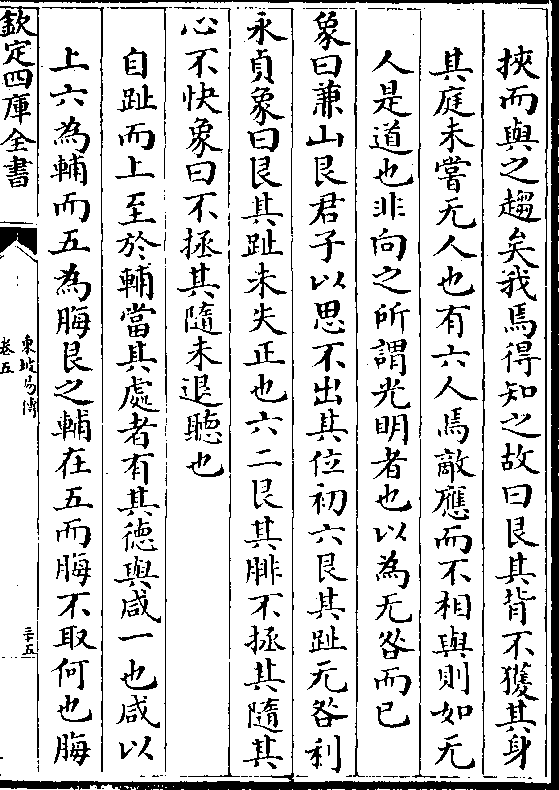 挾而與之趨矣我焉得知之故曰艮其背不獲其身
其庭未嘗无人也有六人焉敵應而不相與則如无
人是道也非向之所謂光明者也以為无咎而已
象曰兼山艮君子以思不出其位初六艮其趾无咎利
永貞象曰艮其趾未失正也六二艮其腓不拯其隨其
心不快象曰不拯其隨未退聽也
自趾而上至於輔當其處者有其德與咸一也咸以
上六為輔而五為脢艮之輔在五而脢不取何也脢
欽定四庫全書
東坡易傳
卷五
三十五